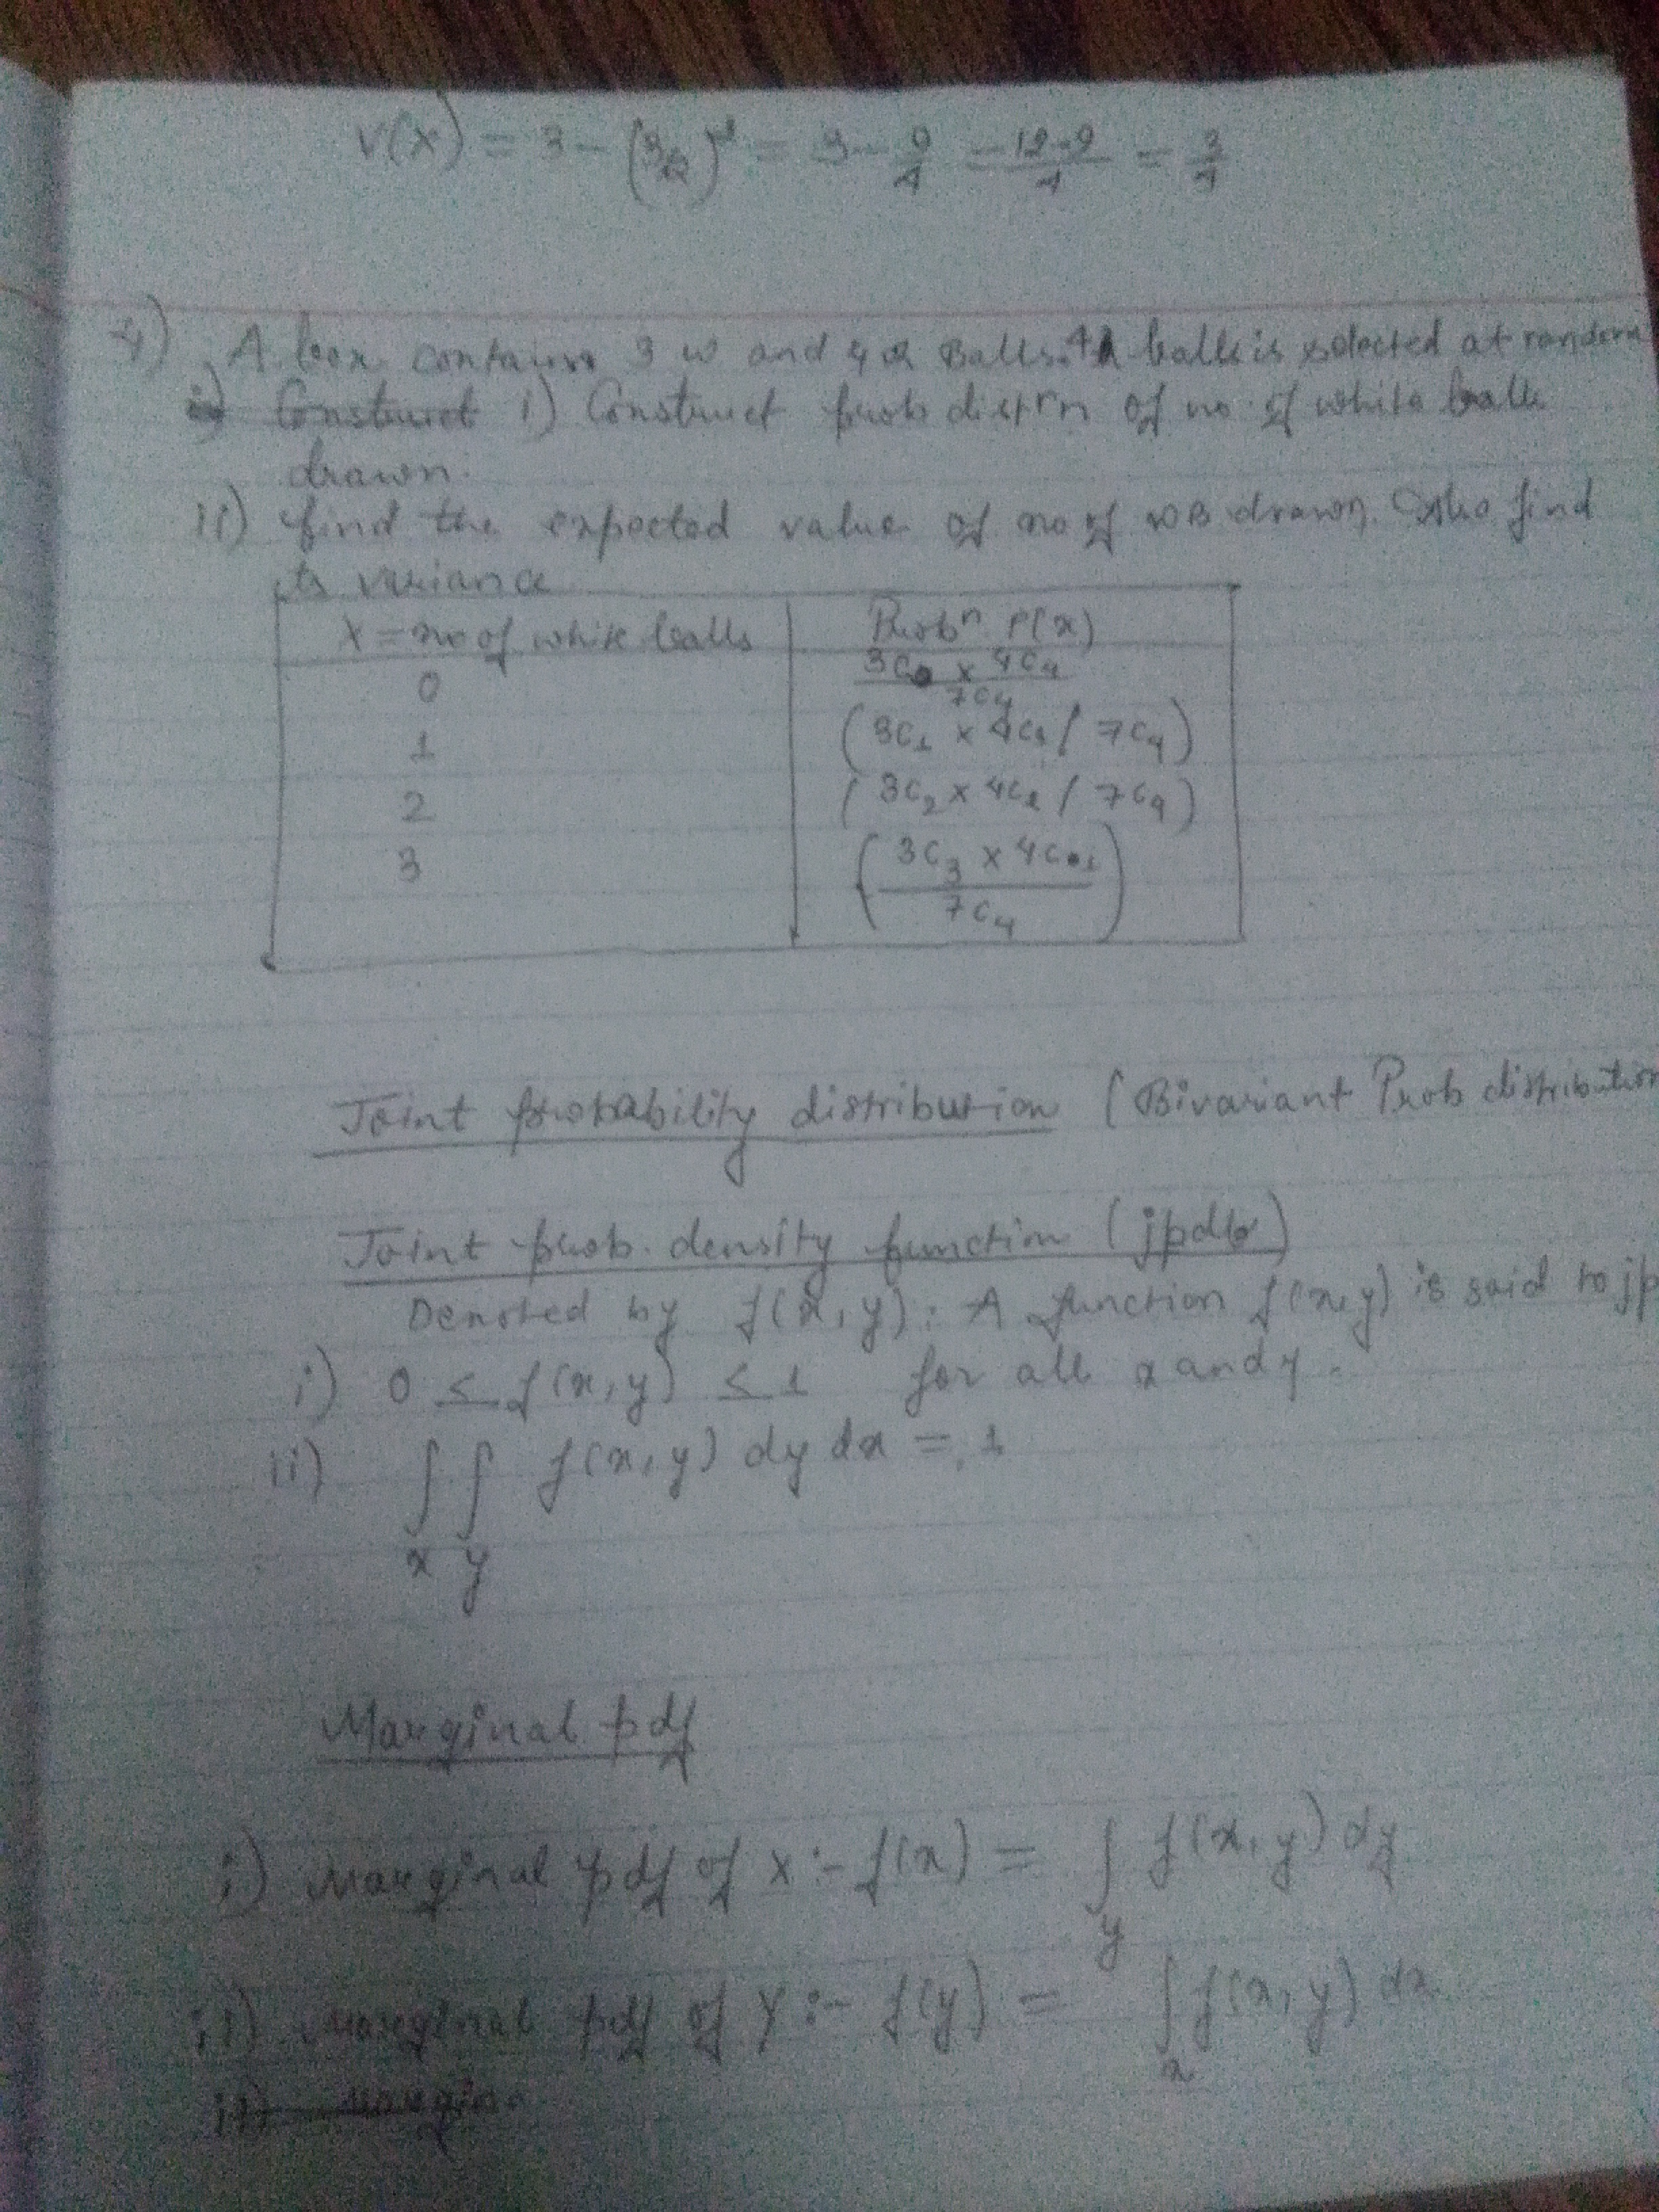 V(X) = 3 - (3/2)² = 3 - 9/4 = 12-9/4 = 3/4
4) A box contains 3 w and 4 R Balls. 4 balls is selected at random
ii) Construct i) Construct prob distrn of no. of white balls
drawn.
ii) find the expected value of no of WB drawn. Also find
its variance
X = no of white balls Probⁿ P(x)
0 3C0 x 4C4 / 7C4
1 (3C1 x 4C3 / 7C4)
2 (3C2 x 4C2 / 7C4)
3 (3C3 x 4C1 / 7C4)
Joint probability distribution (Bivariant Prob distribution
Joint prob. density function (jpdf)
Denoted by f(x, y). A function f(x,y) is said to jp
i) 0 ≤ f(x, y) ≤ 1 for all x and y.
ii) ∫x ∫y f(x, y) dy dx = 1
Marginal pdf
i) Marginal pdf of X :- f(x) = ∫y f(x, y) dy
ii) Marginal pdf of Y :- f(y) = ∫x f(x, y) dx
ii) Margin